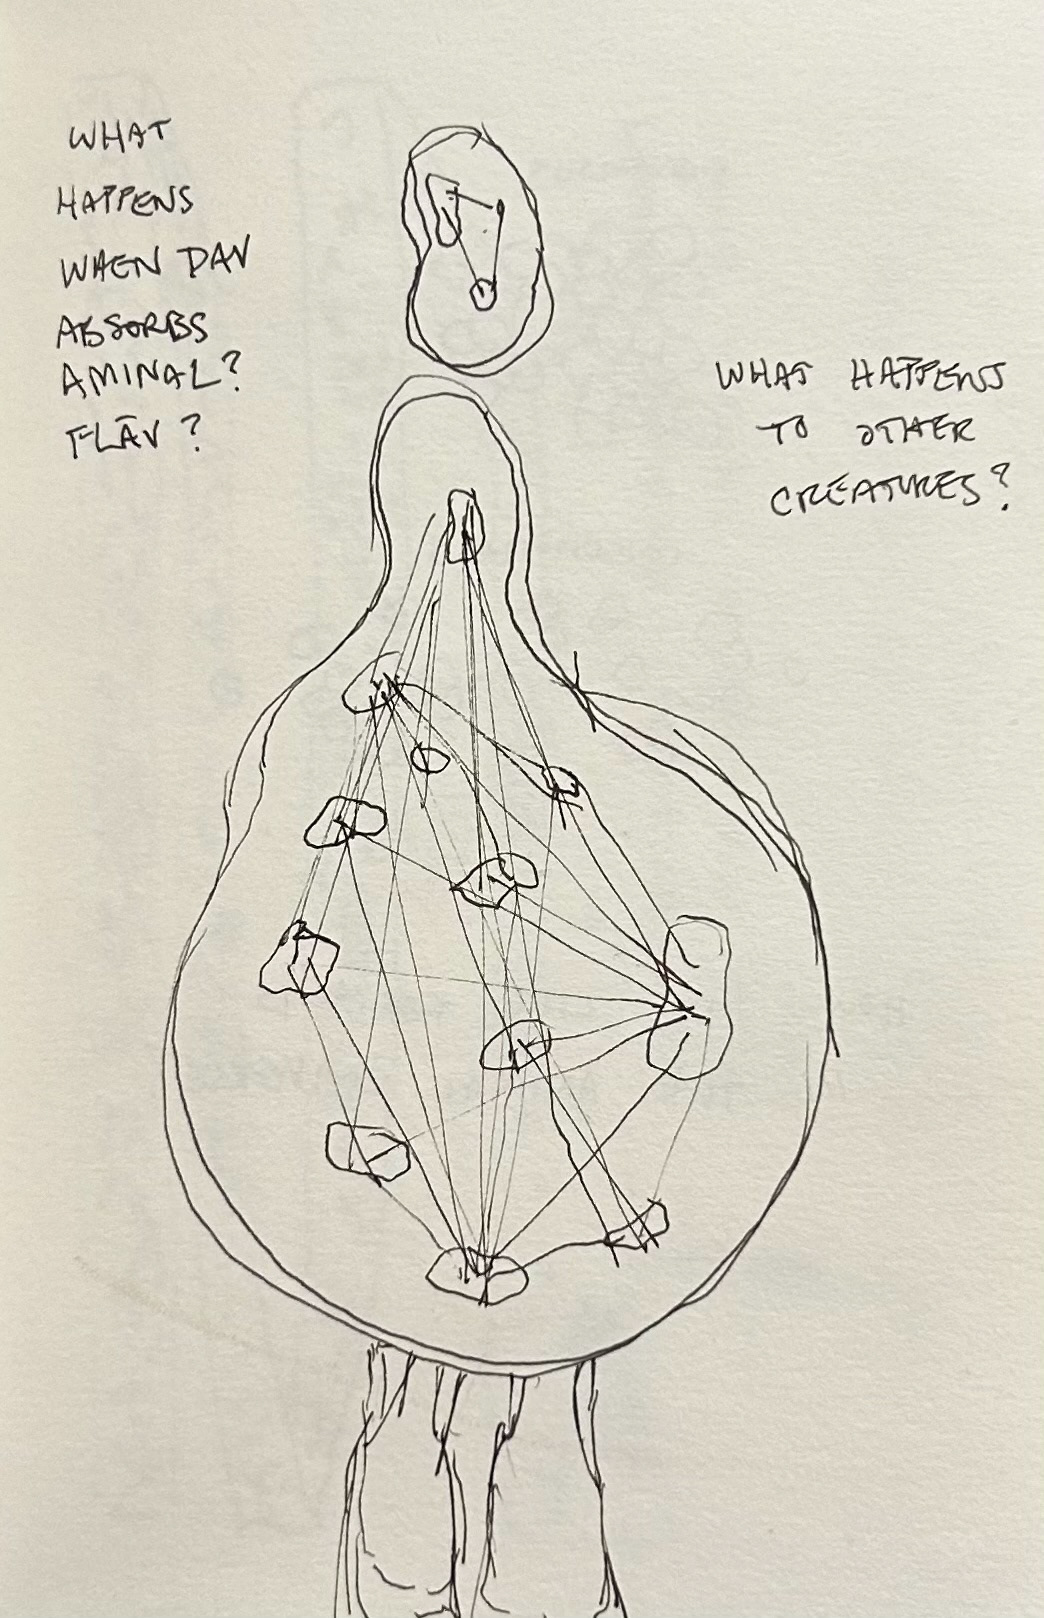 WHAT
HAPPENS
WHEN DAV
ABSORBS
AMINAL?
FLĀV?
WHAT HAPPENS
TO OTHER
CREATURES?